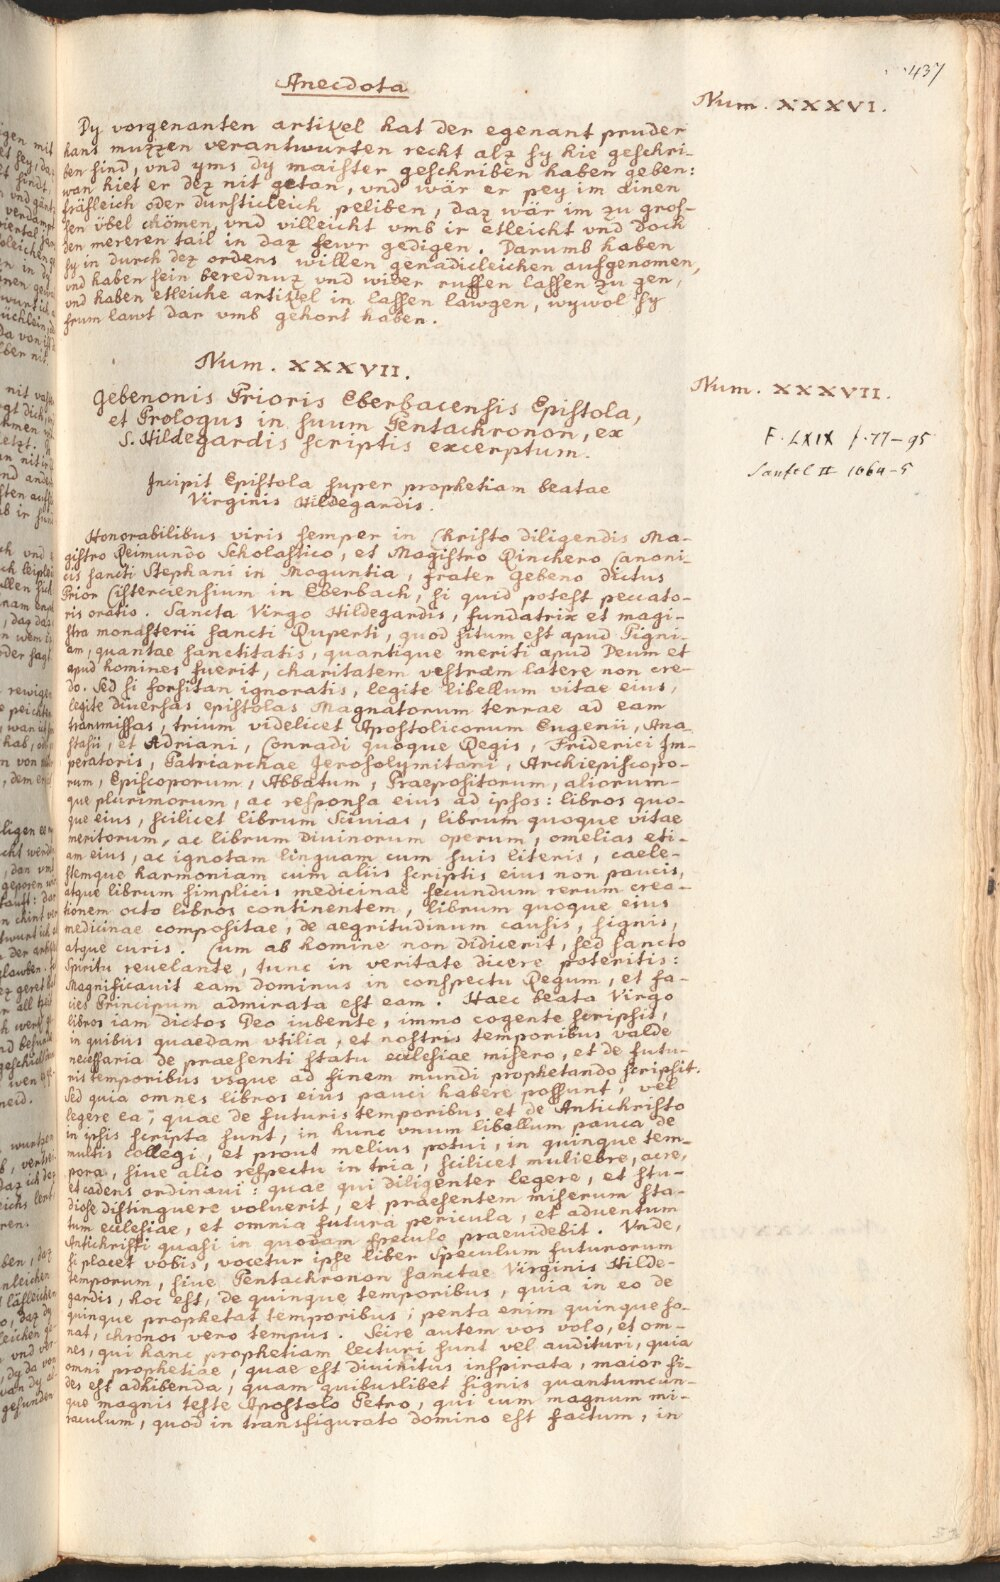 437
Anecdota
Num. XXXVI.
Dy vorgenanten artikel hat der egenant pruder
hans muzzen verantwurten recht alz sy hie geschri-
ben sind, vnd yms dy maister geschriben haben geben:
wan hiet er dez nit getan, vnd wär er pey im ainen
fräfleich oder durfticleich peliben, daz wär im zu gros-
sen vbel chömen, vnd villeicht vmb ir etleicht vnd doch
den mereren tail in daz fewr gedigen. Darumb haben
sy in durch dez ordens willen genädicleichen aufgenomen,
vnd haben sein berednuz vnd wider ruffen lassen zu gen,
vnd haben etleiche artikel in lassen lawgen, wywol sy
frum lawt dar vmb gehort haben.
Num. XXXVII.
Num. XXXVII.
Gebenonis Prioris Eberbacensis Epistola,
et Prologus in suum Pentachronon, ex
S. Hildegardis scriptis excerptum.
F. LXIX f. 77-95
II 1064-5
Incipit Epistola super prophetiam beatae
Virginis Hildegardis.
Honorabilibus viris semper in Christo diligendis Ma-
gistro Reimundo Scholastico, et Magistro Rinchero Canoni-
cis sancti Stephani in Moguntia, frater Gebeno dictus
Prior Cisterciensium in Eberbach, si quid potest peccato-
ris oratio. Sancta Virgo Hildegardis, fundatrix et magi-
stra monasterii sancti Ruperti, quod situm est apud Pigni-
am, quantae sanctitatis, quantique meriti apud Deum et
apud homines fuerit, charitatem vestram latere non cre-
do. Sed si forsitan ignoratis, legite libellum vitae eius,
legite diuersas epistolas Magnatorum terrae ad eam
transmissas, trium videlicet Apostolicorum Eugenii, Ana
stasii, et Adriani, Conradi quoque Regis, Friderici Im-
peratoris, Patriarchae Jerosolymitani, Archiepiscopo-
rum, Episcoporum, Abbatum, Praepositorum, aliorum-
que plurimorum, ac responsa eius ad ipsos: libros quo-
que eius, scilicet librum Sciuias, librum quoque vitae
meritorum, ac librum diuinorum operum, omelias eti-
am eius, ac ignotam linguam cum suis literis, caele-
stemque harmoniam cum aliis scriptis eius non paucis,
atque librum simplicis medicinae secundum rerum crea-
tionem octo libros continentem, librum quoque eius
medicinae compositae, de aegritudinum causis, signis,
atque curis. Cum ab homine non didicerit, sed sancto
Spiritu reuelante, tunc in veritate dicere poteritis:
Magnificauit eam dominus in conspectu Regum, et fa-
cies Principum admirata est eam. Haec beata Virgo
libros iam dictos Deo iubente, immo cogente scripsit,
in quibus quaedam vtilia, et nostris temporibus valde
necessaria de praesenti statu ecclesiae misero, et de futu-
ris temporibus vsque ad finem mundi prophetando scripsit.
Sed quia omnes libros eius pauci habere possunt, vel
legere ea, quae de futuris temporibus et de Antichristo
in ipsis scripta sunt, in hunc vnum libellum pauca de
multis collegi, et prout melius potui, in quinque tem-
pora, siue alio respectu in tria, scilicet muliebre, acre,
et cadens ordinaui: quae qui diligenter legere, et stu-
diose distinguere voluerit, et praesentem miserum sta-
tum ecclesiae, et omnia futura pericula, et aduentum
Antichristi quasi in quodam speculo praeuidebit. Vnde,
si placet vobis, vocetur ipse liber Speculum futurorum
temporum, siue Pentachronon sanctae Virginis Hilde-
gardis, hoc est, de quinque temporibus, quia in eo de
quinque prophetat temporibus; penta enim quinque so-
nat, chronos vero tempus. Scire autem vos volo, et om-
nes, qui hanc prophetiam lecturi sunt vel audituri, quia
omni prophetiae, quae est diuinitus inspirata, maior fi-
des est adhibenda, quam quibuslibet signis quantumcun-
que magnis teste Apostolo Petro, qui cum magnum mi-
raculum, quod in transfigurato domino est factum, in